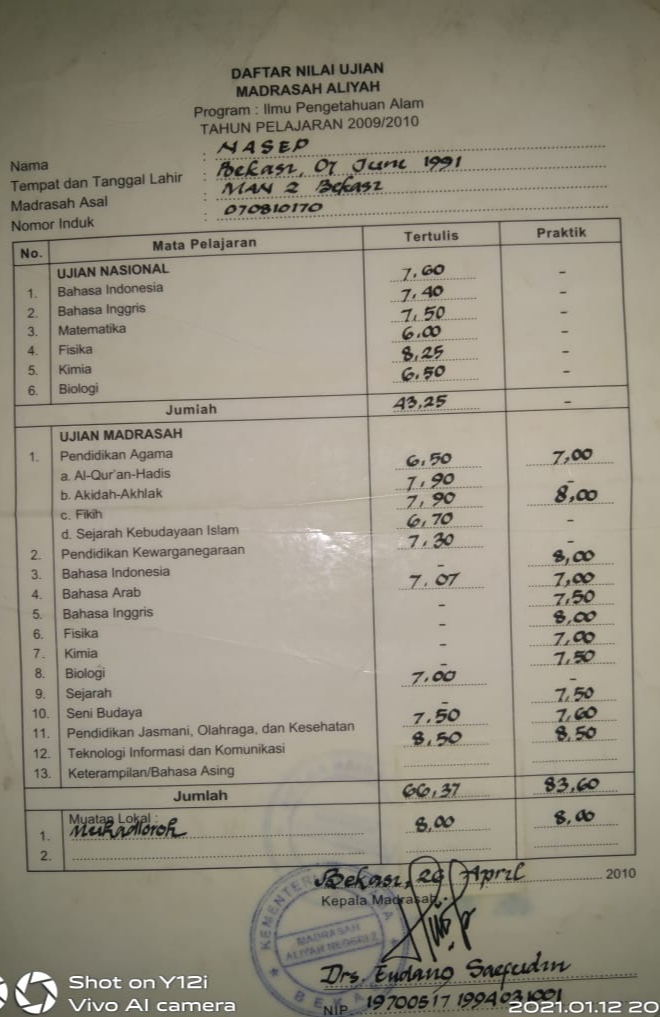 DAFTAR NILAI UJIAN
MADRASAH ALIYAH
Program : Ilmu Pengetahuan Alam
TAHUN PELAJARAN 2009/2010
Nama : NASEP
Tempat dan Tanggal Lahir : Bekasi, 07 Juni 1991
Madrasah Asal : MAN 2 Bekasi
Nomor Induk : 070810170
No. Mata Pelajaran Tertulis Praktik
UJIAN NASIONAL
1. Bahasa Indonesia 7,60 -
2. Bahasa Inggris 7,40 -
3. Matematika 7,50 -
4. Fisika 6,00 -
5. Kimia 8,25 -
6. Biologi 6,50 -
Jumlah 43,25 -
UJIAN MADRASAH
1. Pendidikan Agama
a. Al-Qur'an-Hadis 6,50 7,00
b. Akidah-Akhlak 7,90 -
c. Fikih 7,90 8,00
d. Sejarah Kebudayaan Islam 6,70 -
2. Pendidikan Kewarganegaraan 7,30 -
3. Bahasa Indonesia - 8,00
4. Bahasa Arab 7,07 7,00
5. Bahasa Inggris - 7,50
6. Fisika - 8,00
7. Kimia - 7,00
8. Biologi - 7,50
9. Sejarah 7,00 -
10. Seni Budaya - 7,50
11. Pendidikan Jasmani, Olahraga, dan Kesehatan 7,50 7,60
12. Teknologi Informasi dan Komunikasi 8,50 8,50
13. Keterampilan/Bahasa Asing
Jumlah 66,37 83,60
Muatan Lokal :
1. Muhadloroh 8,00 8,00
2.
Bekasi, 26 April 2010
Kepala Madrasah
KEMENTERIAN
MADRASAH
ALIYAH NEGERI 2
BEKASI
Drs. Endang Saefudin
NIP. 19700517 199403 1001
Shot on Y12i
Vivo AI camera
2021.01.12 20